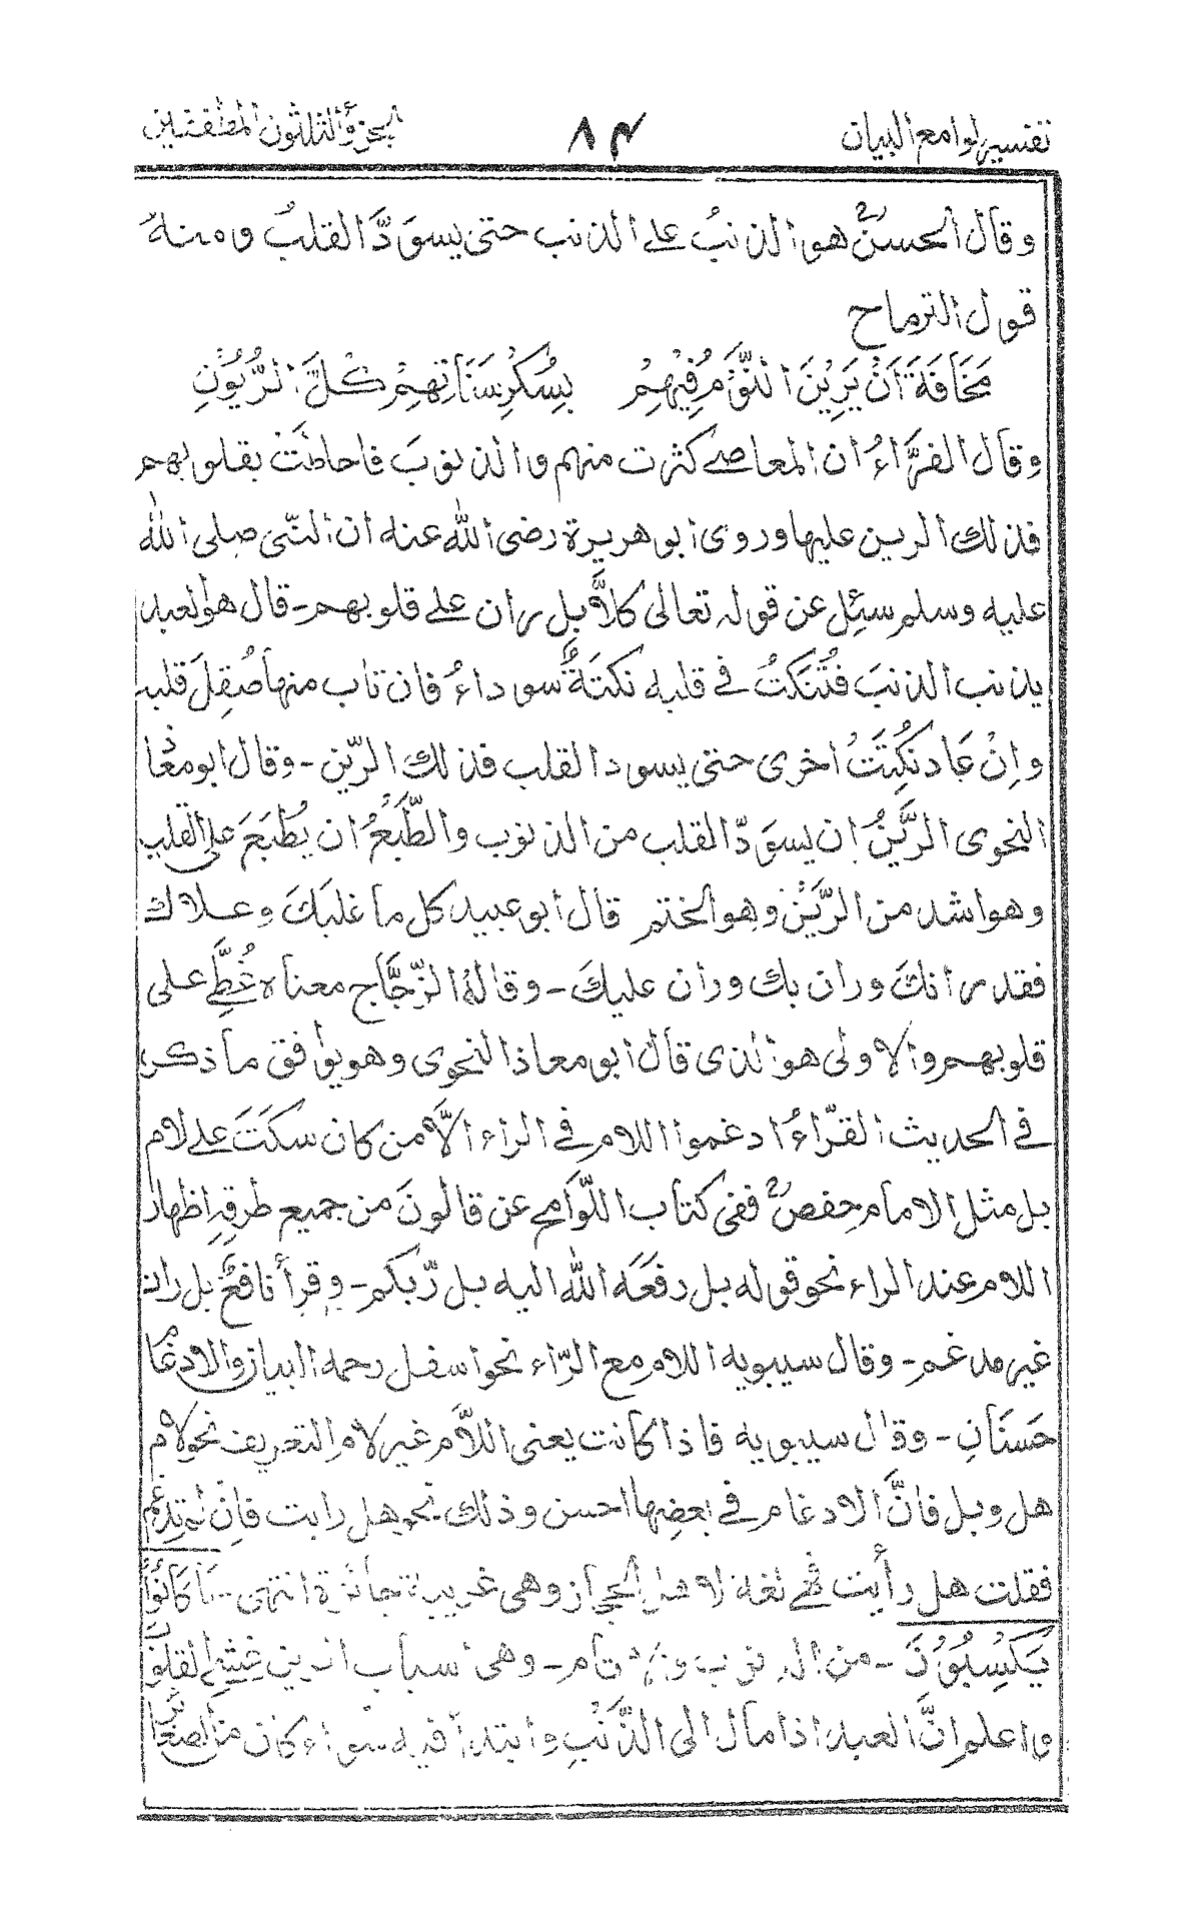 تفسير لوامع البيان ٨٤ الجزء الثلثون المطففين
وقال الحسنؒ هو الذنبُ على الذنب حتى يسوَدَّ القلبُ ومنه
قول الترماح
مَخَافَةَ اَنْ يَرِيْنَ النَّوْمُ فِيْهِمْ بِسُكْرِ سَنَاتِهِمْ كُلَّ الرُّيُوْنِ
وقال الفرَّاءُ ان المعاصے كثرت منهم والذنوبَ فاحاطت بقلوبهم
فذلك الرين عليها وروى ابو هريرة رضى الله عنه ان النبّى صلى الله
عليه وسلم سئِل عن قوله تعالى كلاَّ بل ران على قلوبهم۔ قال هو العبد
يذنب الذنبَ فتُنكَتُ فے قلبه نكتَةٌ سوداءُ فان تاب منها صُقِلَ قلبه
وانْ عَاد نكِتَتْ اخرى حتى يسود القلب فذلك الرّين۔ وقال ابو معاذ
النحوى الرَّيْنُ ان يسوَدّ القلب من الذنوب والطَّبَعُ ان يُطبَعَ على القلب
وهو اشد من الرَّيْن وهو الختم قال ابو عبيد كل ما غلبَكَ وعلاك
فقد رانكَ وران بك وران عليكَ۔ وقالهُ الزّجَّاج معناه غُطِّے على
قلوبهم والاولى هو الذى قال ابو معاذ النحوى وهو يوافق ما ذكر
فے الحديث القرّاءُ ادغموا اللام فے الراء الاَّ من كان سكَتَ على لام
بل مثل الامام حفصؒ ففى كتاب اللّوامح عن قالونَ من جميع طرقِه اظهار
اللام عند الراء نحو قوله بل رفعَه الله اليه بل رّبكم۔ وقرأ نافعٌ بل ران
غير مدغم۔ وقال سيبويه اللام مع الرّاء نحو اسفل رحمه البيان والادغام
حَسَنَانِ۔ وقال سيبويه فاذا كانت يعنى اللاَّم غير لام التعريف نحو لام
هل وبل فانَّ الادغام فے بعضها احسن وذلك نحو هل رايت فان لم تدغم
فقلت هل رأيت فهے لغة لاهل الحجاز وهى غريبة جائزة انتهى۔ مَا كَانُوْا
يَكْسِبُوْنَ۔ من الذنوب و وهى اسباب الرين
واعلم انَّ العبد اذا مال الى الذَّنْبِ وابتدأ فيه سواء كان من الصغائر